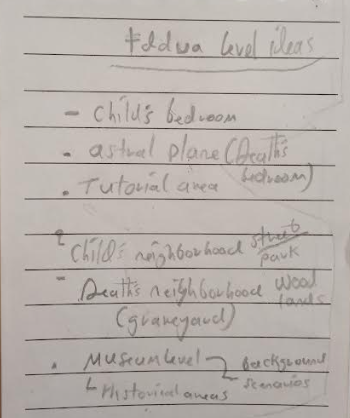 tddwa level ideas
- Child's bedroom
- astral plane (Death's bedroom)
- Tutorial area
- Child's neighborhood street park
- Death's neighborhood wood lands
(graveyard)
- Museum level background
Historical areas scenarios